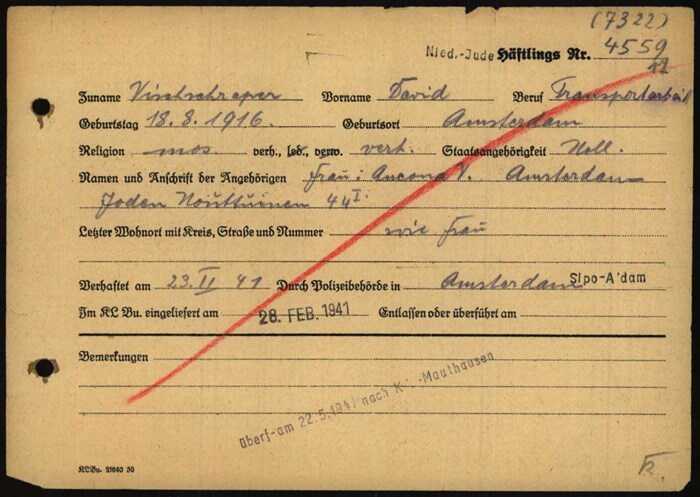 (7322)
Nied.-Jude Häftlings Nr. 4559
Zuname Vischschraper Vorname David Beruf Transportarbeit
Geburtstag 18.8.1916. Geburtsort Amsterdam
Religion mos. verh., led., verw. verh. Staatsangehörigkeit Holl.
Namen und Anschrift der Angehörigen Frau: Ancona V. Amsterdam
Joden Houttuinen 44 I.
Letzter Wohnort mit Kreis, Straße und Nummer wie Frau
Verhaftet am 23.II 41 Durch Polizeibehörde in Amsterdam Sipo-A'dam
Im KL Bu. eingeliefert am 28. FEB. 1941 Entlassen oder überführt am
Bemerkungen
überf.am 22.5.1941 nach K.L.-Mauthausen
KLBu.